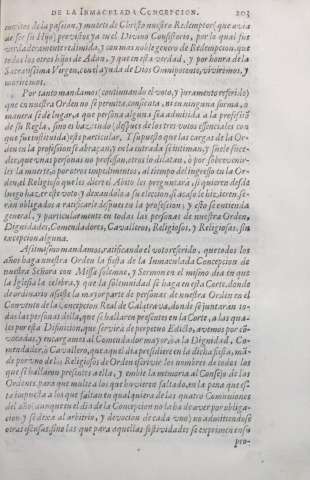 DE LA INMACULADA CONCEPCION. 203
meritos de la passion, y muerte de Christo nuestro Redemptor (que avia
de ser su Hijo) prevista ya en el Divino Consistorio, por la qual fue
verdaderamente redimida, y con mas noble genero de Redempcion, que
todos los otros hijos de Adan, y que en esta verdad, y por honra de la
Sacratissima Virgen, con el ayuda de Dios Omnipotente, viviremos, y
moriremos.
Por tanto mandamos (continuando el voto, y juramento referido)
que en nuestra Orden no se permita, consienta, ni en ninguna forma, o
manera se dè lugar, a que persona alguna sea admitida a la professiõ
de su Regla, sino es haziendo (despues de los tres votos essenciales con
que fue instituida) este particular. I supuesto que las cargas de la Or-
den en la profession se abraçan, y en la entrada se intiman, y suele suce-
der, que unas personas no professan, otras lo dilatan, ò por sobrevenir-
les la muerte, o por otros impedimentos, al tiempo del ingresso en la Or-
den, el Religioso que les diere el Abito les preguntarà, si quieren desde
luego hazer este voto, y dexandolo a su eleccion, si acaso le hizieren, se-
ràn obligados a ratificarle despues en la profession; y esto se entienda
general, y particularmente en todas las personas de nuestra Orden,
Dignidades, Comendadores, Cavalleros, Religiosos, y Religiosas, sin
excepcion alguna.
Assimismo mandamos, ratificando el voto referido, que todos los
años haga nuestra Orden la fiesta de la Inmaculada Concepcion de
nuestra Señora con Missa solemne, y Sermon en el mismo dia en que
la Iglesia la celebra, y que la solemnidad se haga en esta Corte, donde
de ordinario assiste la mayor parte de personas de nuestra Orden en el
Convento de la Concepcion Real de Calatrava, donde se juntaràn to-
das las personas della, que se hallaren presentes en la Corte, a las qua-
les por esta Difinicion, que servirà de perpetuo Edicto, avemos por cõ-
vocadas, y encargamos al Comendador mayor, ò a la Dignidad, Co-
mendador, ò Cavallero, que aquel dia presidiere en la dicha fiesta, mã-
de por uno de los Religiosos de Orden escrivir los nombres de todos los
que se hallaren presentes a ella, y embie la memoria al Consejo de las
Ordenes, para que multe a los que huvieren faltado, en la pena que es-
ta impuesta a los que faltan a qualquiera de las quatro Comuniones
del año (aunque en el dia de la Concepcion no la ha de aver por obliga-
cion, y se dexa al arbitrio, y devocion de cada uno) no admitiendose
otras escusas, sino las que para aquellas festividades se exprimen en su
pro-